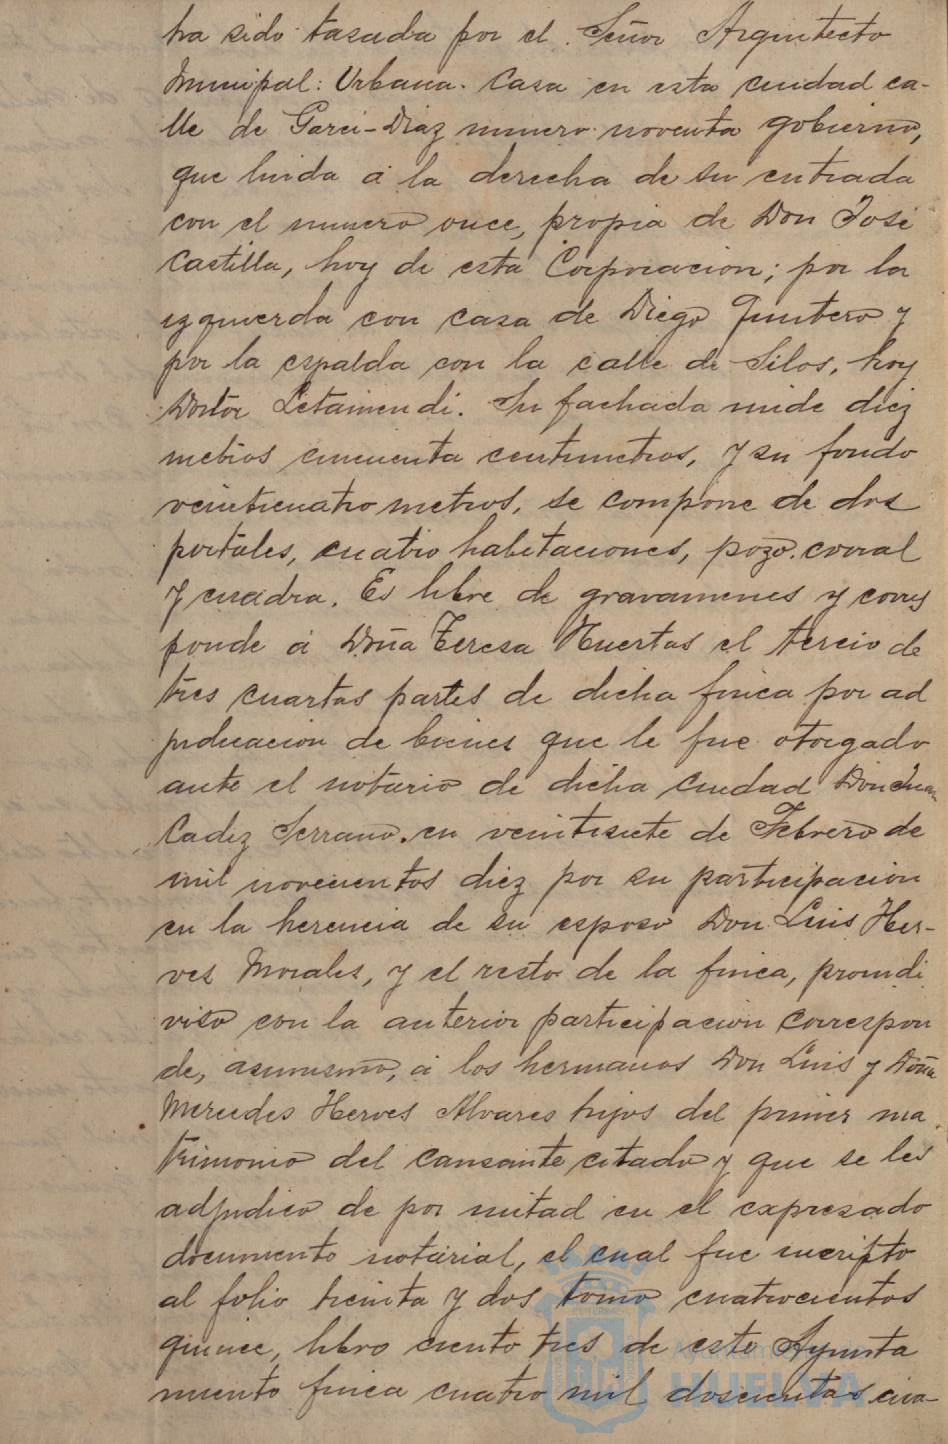 ha sido tasada por el Señor Arquitecto
Municipal: Urbana. Casa en esta ciudad ca-
lle de Garci-Diaz numero noventa gobierno,
que linda á la derecha de su entrada
con el numero once, propia de Don José
Castilla, hoy de esta Corporacion; por la
izquierda con casa de Diego Quintero y
por la espalda con la calle de Silos, hoy
Doctor Letamendi. Su fachada mide diez
metros cincuenta centimetros, y su fondo
veinticuatro metros, se compone de dos
portales, cuatro habitaciones, pozo. corral
y cuadra. Es libre de gravamenes y corres
ponde á Doña Teresa Huertas el tercio de
tres cuartas partes de dicha finca por ad
judicacion de bienes que le fue otorgado
ante el notario de dicha ciudad Don Juan
Cadiz Serrano. en veintisiete de Febrero de
mil novecientos diez por su participacion
en la herencia de su esposo Don Luis Her-
ves Morales, y el resto de la finca, proindi
viso con la anterior participacion correspon
de, asimismo, á los hermanos Don Luis y Doña
Mercedes Herves Alvares hijos del primer ma
trimonio del causante citado y que se les
adjudico de por mitad en el expresado
documento notarial, el cual fue inscripto
al folio treinta y dos tomo cuatrocientos
quince, libro ciento tres de este Ayunta
miento finca cuatro mil doscientas cin-
Ayuntamiento de
HUELVA